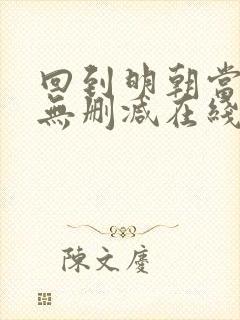 回到明朝當
無刪減在綫
陳文慶